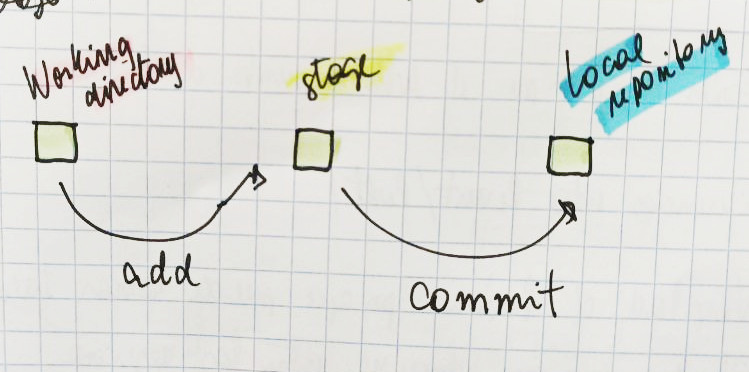 Working
directory
stage
Local
repository
add
commit